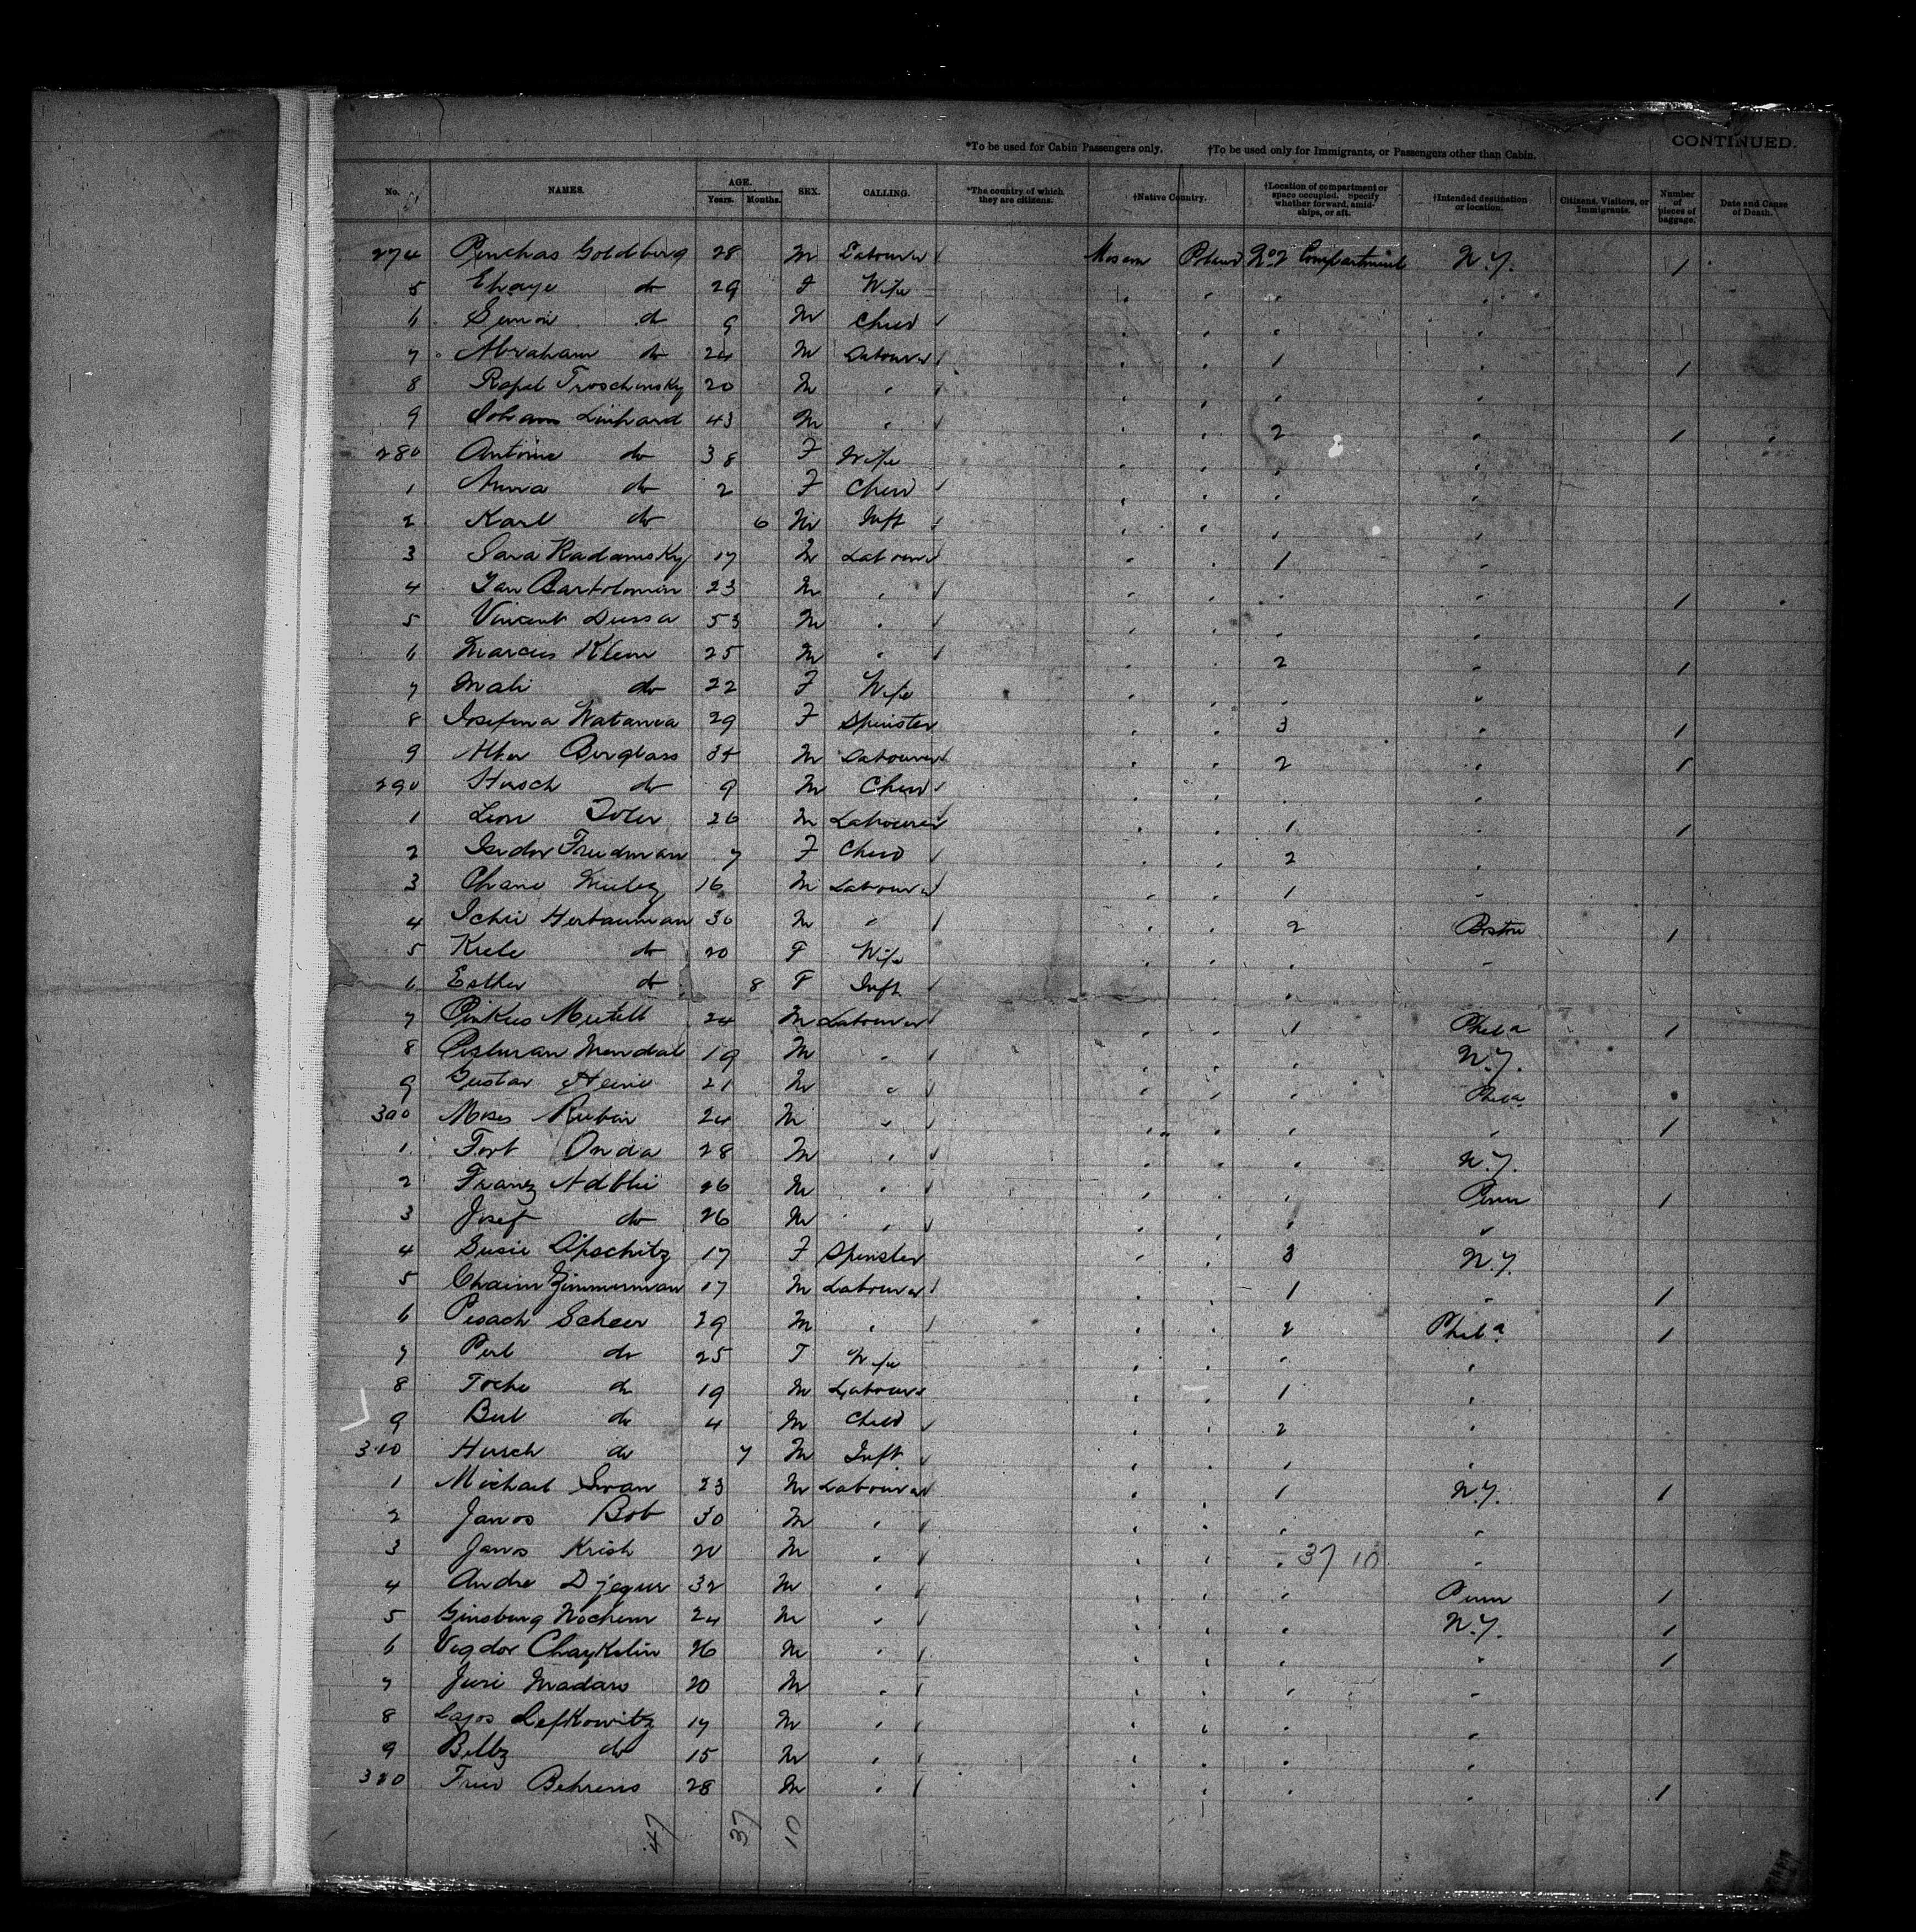 CONTINUED.
*To be used for Cabin Passengers only. †To be used only for Immigrants, or Passengers other than Cabin.
No. NAMES. AGE. Years. Months. SEX. CALLING. *The country of which they are citizens. †Native Country. †Location of compartment or space occupied. Specify whether forward, amidships, or aft. †Intended destination or location. Citizens, Visitors, or Immigrants. Number of pieces of baggage. Date and Cause of Death.
274 Pinchas Goldberg 28 M Labourer Poland No 2 Compartment N.Y. 1
5 Chaye do 29 F Wife
6 Simon do 9 M Child
7 Abraham do 24 M Labourer 1 1
8 Troschinsky 20 M "
9 Johann Linhard 43 M " 2 1
280 Antonie do 38 F Wife
1 Anna do 2 F Child
2 Karl do 6 M Inft
3 Sara Radamsky 17 M Labourer 1
4 Jan Bartolomin 23 M " 1
5 Vincent Dussa 53 M "
6 Marcus Klein 25 M " 2 1
7 Mali do 22 F Wife
8 Josefina Watanva 29 F Spinster 3 1
9 Alter Berglass 35 M Labourer 2 1
290 Hirsch do 9 M Child
1 Leon 26 M Labourer 1 1
2 Isidor Friedman 7 F Child 2
3 Chane 16 M Labourer 1
4 Herbauman 30 M " 2 Boston 1
5 do 20 F Wife
6 Esther do 8 F Inft
7 Pinkus 24 M Labourer 1 Phila 1
8 Mendal 19 M " N.Y.
9 Gustav Heine 21 M " Phila
300 Moses Rubin 24 M " 1
1 Fort Onda 28 M " N.Y.
2 Franz 26 M " Penn 1
3 Josef do 26 M "
4 Susie Lipschitz 17 F Spinster 3 N.Y.
5 Chaim Zimmerman 17 M Labourer 1 1
6 Pesach Scheer 29 M " 2 Phila 1
7 Perl do 25 F Wife
8 do 19 M Labourer 1
9 do 4 M Child 2
310 Hirsch do 7 M Inft
1 Michael Ivan 23 M Labourer 1 N.Y. 1
2 Janos Bob 30 M "
3 Janos Krish 20 M " 37 10
4 Andre 32 M " Penn 1
5 Ginsburg Nochem 24 M " N.Y. 1
6 Vigdor Chaykelin 26 M " 1
7 Juri Madars 20 M "
8 Lajos Lefkowitz 17 M "
9 do 15 M "
320 Behrens 28 M " 1
47 37 10